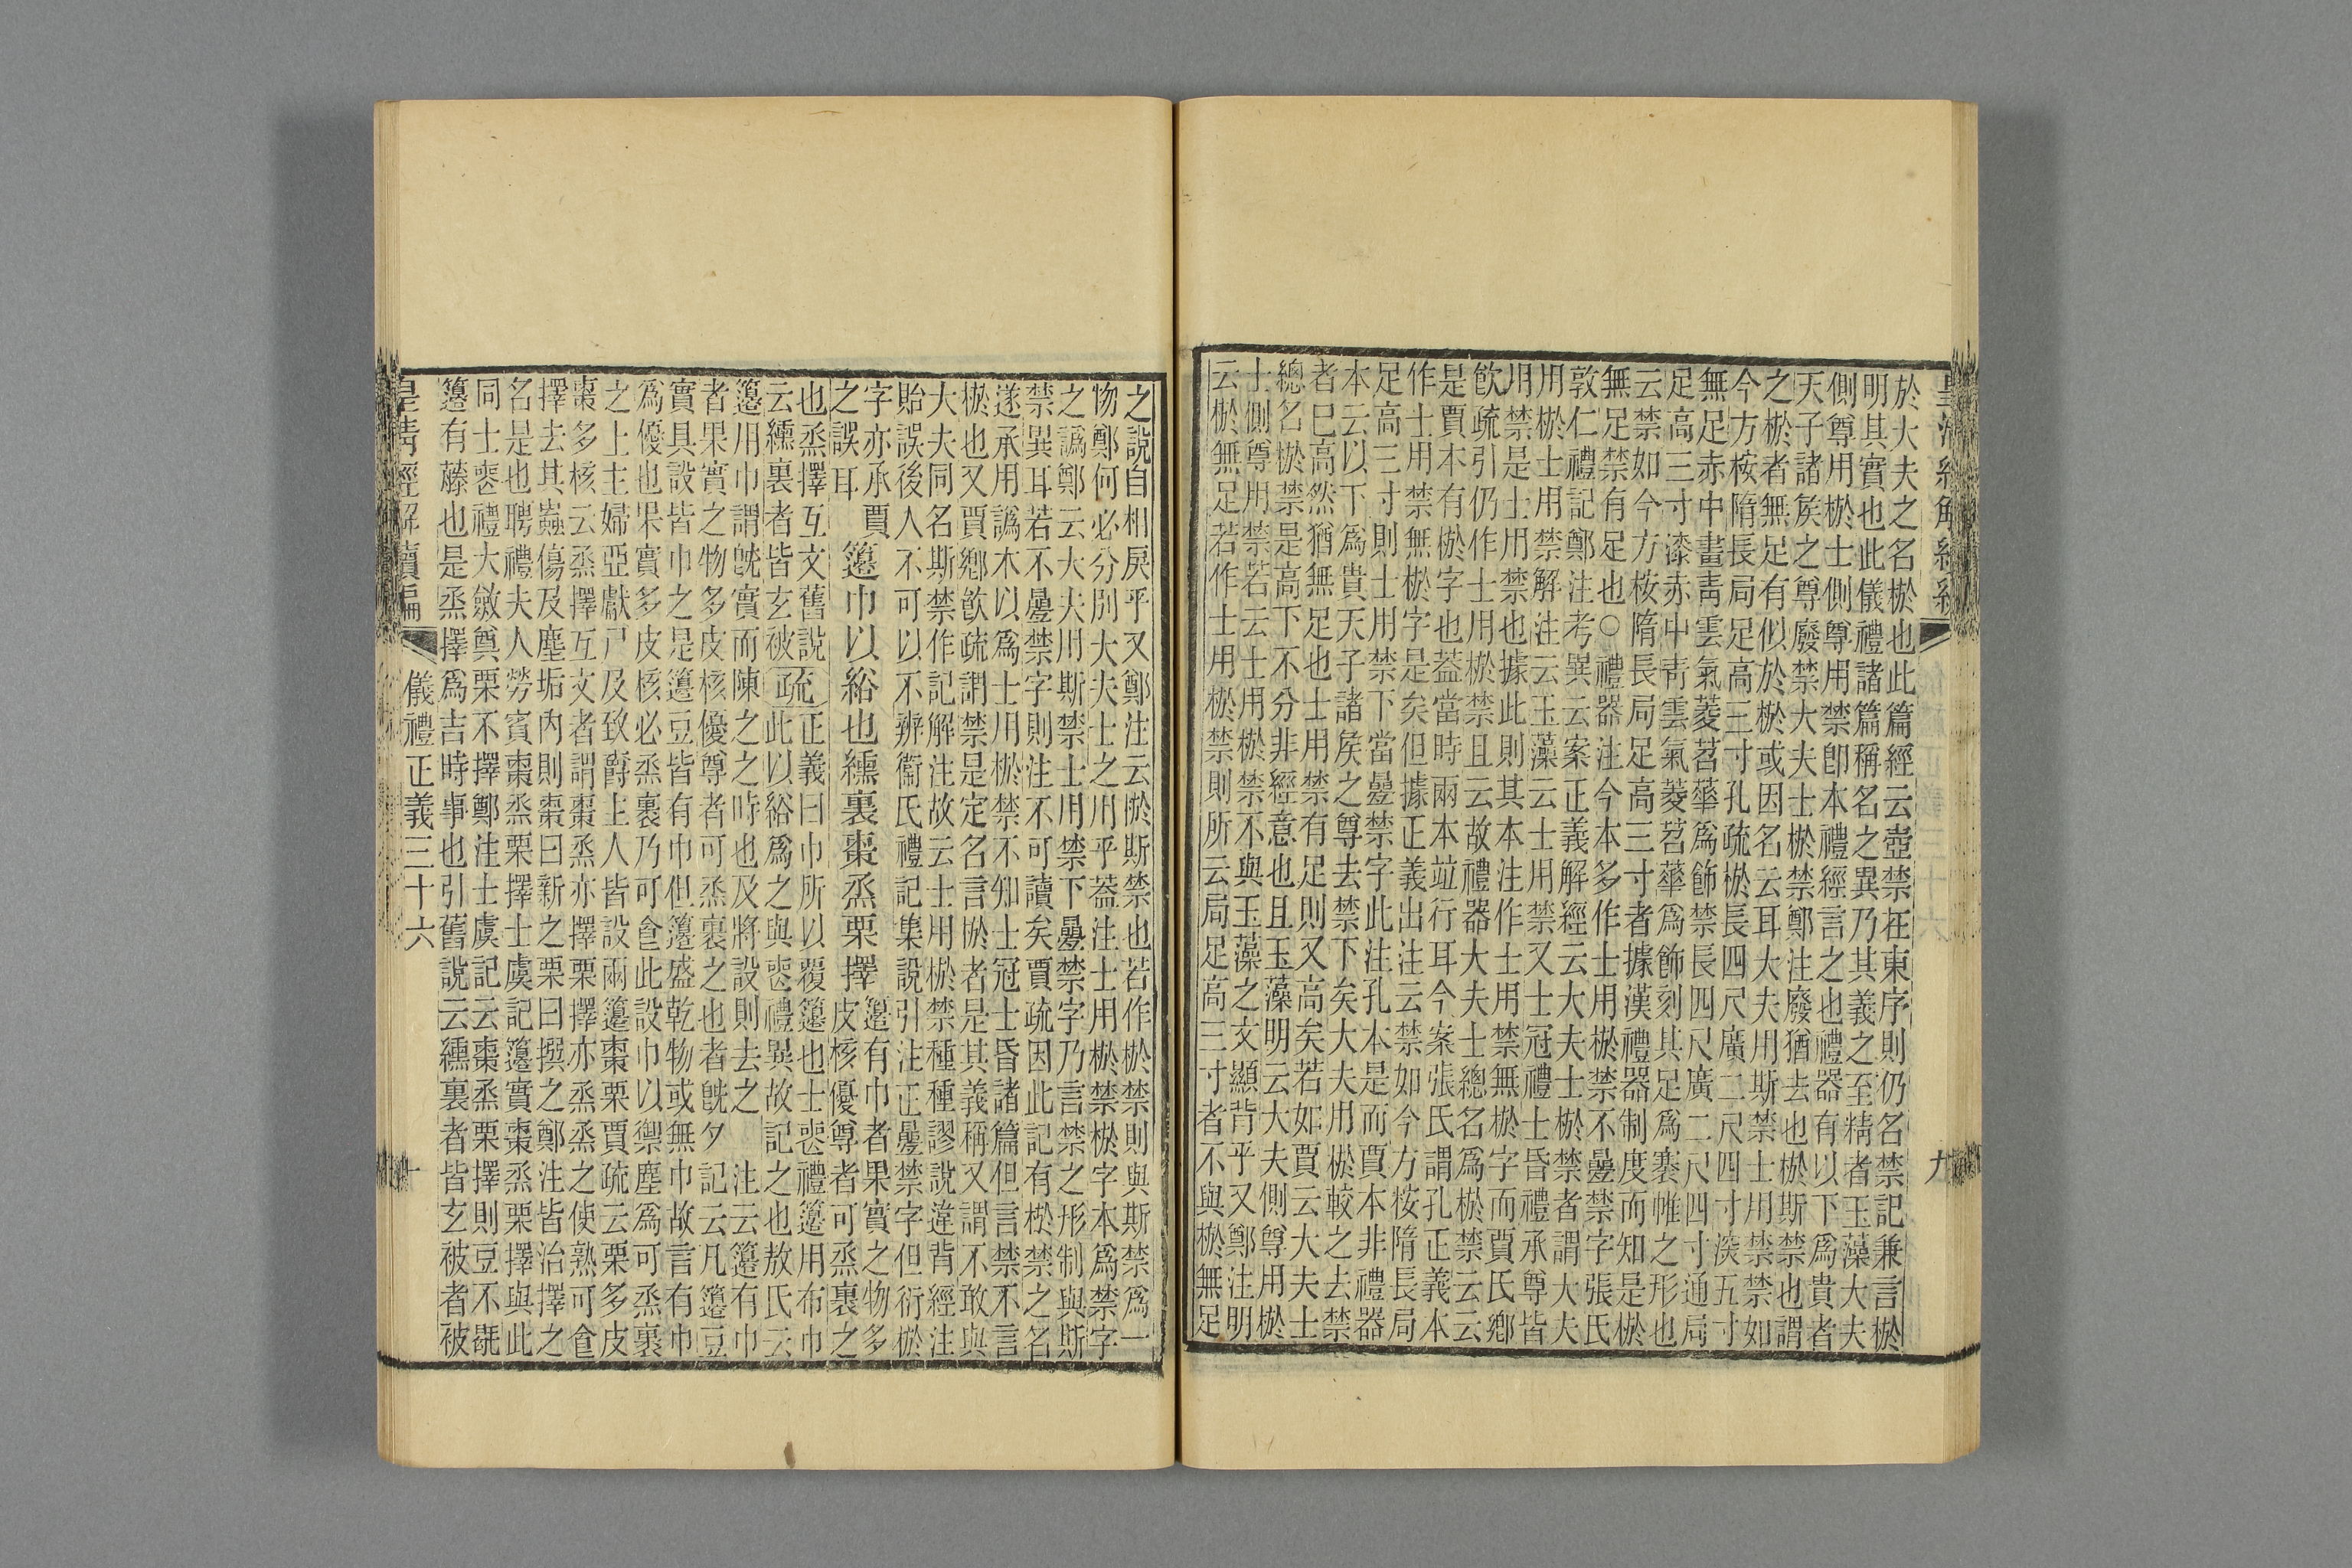 於大夫之名棜也此篇經云壺禁在東序則仍名禁記兼言棜
明其實也此儀禮諸篇稱名之異乃其義之至精者玉藻大夫
側尊用棜士側尊用禁卽本禮經言之也禮器有以下爲貴者
天子諸矦之尊廢禁大夫士棜禁鄭注廢猶去也棜斯禁也謂
之棜者無足有似於棜或因名云耳大夫用斯禁士用禁禁如
今方桉隋長局足高三寸孔疏棜長四尺廣二尺四寸深五寸
無足赤中畫靑雲氣菱苕華爲飾禁長四尺廣二尺四寸通局
足高三寸漆赤中靑雲氣菱苕華爲飾刻其足爲褰帷之形也
云禁如今方桉隋長局足高三寸者據漢禮器制度而知是棜
無足禁有足也○禮器注今本多作士用棜禁不疊禁字張氏
敦仁禮記鄭注考異云案正義解經云大夫士棜禁者謂大夫
用棜士用禁解注云玉藻云士用禁又士冠禮士昏禮承尊皆
用禁是士用禁也據此則其本注作士用禁無棜字而賈氏鄉
飮疏引仍作士用棜禁且云故禮器大夫士總名爲棜禁云云
是賈本有棜字也葢當時兩本竝行耳今案張氏謂孔正義本
作士用禁無棜字是矣但據正義出注云禁如今方桉隋長局
足高三寸則士用禁下當疊禁字此注孔本是而賈本非禮器
本云以下爲貴天子諸矦之尊去禁下矣大夫用棜較之去禁
者已高然猶無足也士用禁有足則又高矣若如賈云大夫士
總名棜禁是高下不分非經意也且玉藻明云大夫側尊用棜
士側尊用禁若云士用棜禁不與玉藻之文顯背乎又鄭注明
云棜無足若作士用棜禁則所云局足高三寸者不與棜無足
九
之說自相戾乎又鄭注云棜斯禁也若作棜禁則與斯禁爲一
物鄭何必分別大夫士之用乎葢注士用棜禁棜字本爲禁字
之譌鄭云大夫用斯禁士用禁下疊禁字乃言禁之形制與斯
禁異耳若不疊禁字則注不可讀矣賈疏因此記有棜禁之名
遂承用譌本以爲士用棜禁不知士冠士昏諸篇但言禁不言
棜也又賈鄉飮疏謂禁是定名言棜者是其義稱又謂不敢與
大夫同名斯禁作記解注故云士用棜禁種種謬說違背經注
貽誤後人不可以不辨衞氏禮記集說引注正疊禁字但衍棜
字亦承賈
之誤耳
籩巾以綌也纁裏棗烝栗擇
籩有巾者果實之物多
皮核優尊者可烝裹之
也烝擇互文舊說
云纁裏者皆玄被
疏
正義曰巾所以覆籩也士喪禮籩用布巾
此以綌爲之與喪禮異故記之也敖氏云
籩用巾謂旣實而陳之之時也及將設則去之　注云籩有巾
者果實之物多皮核優尊者可烝裹之也者旣夕　記云凡籩豆
實具設皆巾之是籩豆皆有巾但籩盛乾物或無巾故言有巾
爲優也果實多皮核必烝裹乃可食此設巾以禦塵爲可烝裹
之上主婦亞獻尸及致爵主人皆設兩籩棗栗賈疏云栗多皮
棗多核云烝擇互文者謂棗烝亦擇栗擇亦烝烝之使熟可食
擇去其蟲傷及塵垢內則棗曰新之栗曰撰之鄭注皆治擇之
名是也聘禮夫人勞賓棗烝栗擇士虞記籩實棗烝栗擇與此
同士喪禮大斂奠栗不擇鄭注士虞記云棗烝栗擇則豆不毼
籩有藤也是烝擇爲吉時事也引舊說云纁裏者皆玄被者被
皇淸經解續編
儀禮正義三十六
十